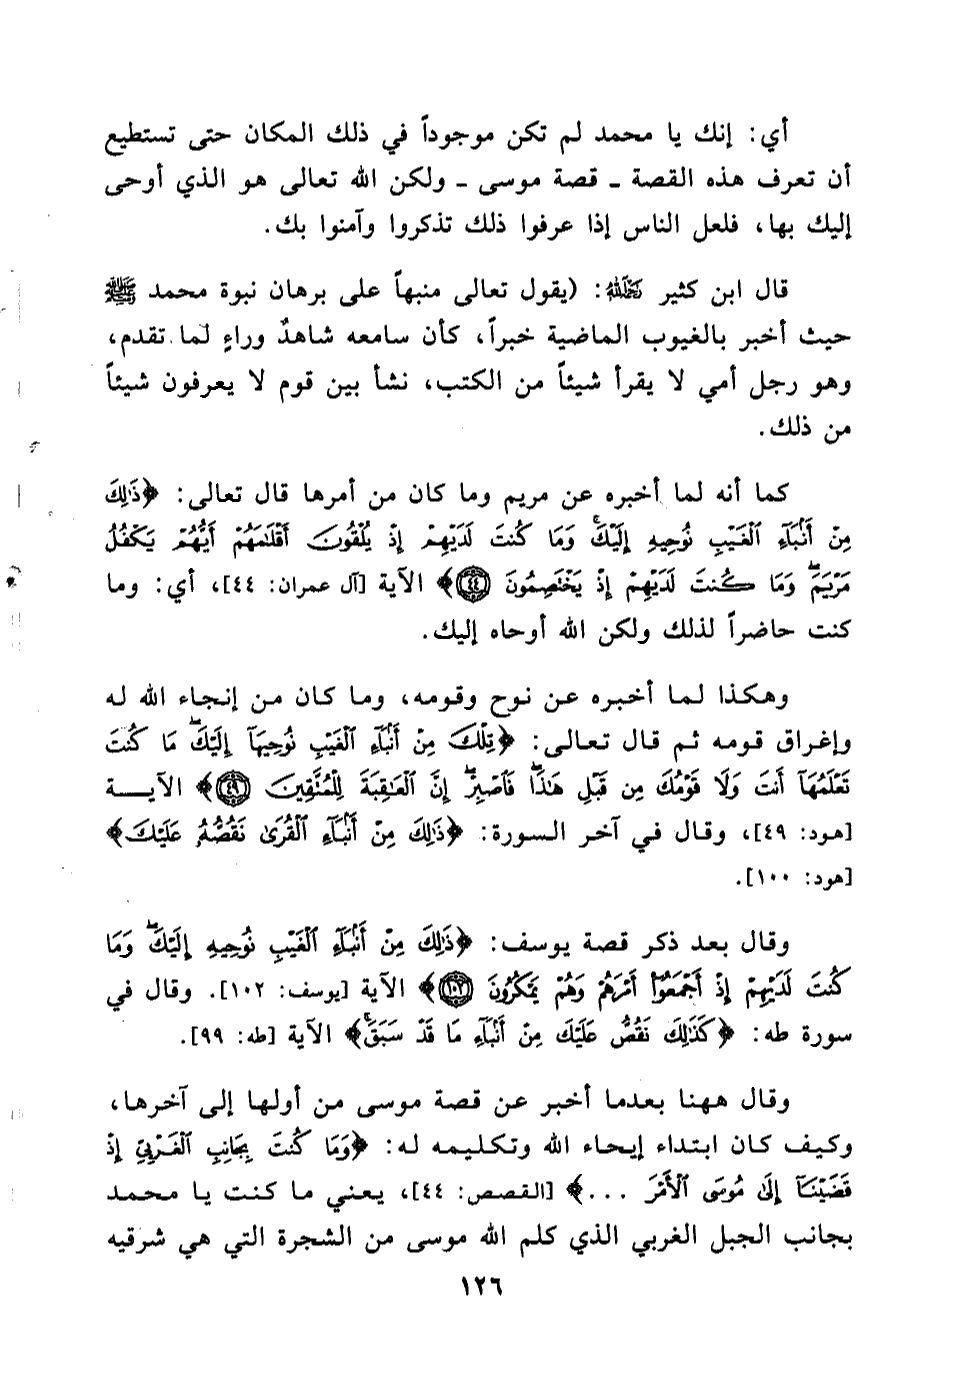 أي: إنك يا محمد لم تكن موجوداً في ذلك المكان حتى تستطيع
أن تعرف هذه القصة ـ قصة موسى ـ ولكن الله تعالى هو الذي أوحى
إليك بها، فلعل الناس إذا عرفوا ذلك تذكروا وآمنوا بك.
قال ابن كثير رَحِمَهُ اللهُ: (يقول تعالى منبهاً على برهان نبوة محمد ﷺ
حيث أخبر بالغيوب الماضية خبراً، كأن سامعه شاهدٌ وراءٍ لما تقدم،
وهو رجل أمي لا يقرأ شيئاً من الكتب، نشأ بين قوم لا يعرفون شيئاً
من ذلك.
كما أنه لما أخبره عن مريم وما كان من أمرها قال تعالى: ﴿ذَٰلِكَ
مِنْ أَنۢبَآءِ ٱلْغَيْبِ نُوحِيهِ إِلَيْكَ ۚ وَمَا كُنتَ لَدَيْهِمْ إِذْ يُلْقُونَ أَقْلَٰمَهُمْ أَيُّهُمْ يَكْفُلُ
مَرْيَمَ ۖ وَمَا كُنتَ لَدَيْهِمْ إِذْ يَخْتَصِمُونَ ٤٤﴾ الآية [آل عمران: ٤٤]، أي: وما
كنت حاضراً لذلك ولكن الله أوحاه إليك.
وهكذا لما أخبره عن نوح وقومه، وما كان من إنجاء الله له
وإغراق قومه ثم قال تعالى: ﴿تِلْكَ مِنْ أَنۢبَآءِ ٱلْغَيْبِ نُوحِيهَآ إِلَيْكَ ۖ مَا كُنتَ
تَعْلَمُهَآ أَنتَ وَلَا قَوْمُكَ مِن قَبْلِ هَٰذَا ۖ فَٱصْبِرْ ۖ إِنَّ ٱلْعَٰقِبَةَ لِلْمُتَّقِينَ ٤٩﴾ الآيــة
[هود: ٤٩]، وقال في آخر السورة: ﴿ذَٰلِكَ مِنْ أَنۢبَآءِ ٱلْقُرَىٰ نَقُصُّهُۥ عَلَيْكَ﴾
[هود: ١٠٠].
وقال بعد ذكر قصة يوسف: ﴿ذَٰلِكَ مِنْ أَنۢبَآءِ ٱلْغَيْبِ نُوحِيهِ إِلَيْكَ ۖ وَمَا
كُنتَ لَدَيْهِمْ إِذْ أَجْمَعُوٓا۟ أَمْرَهُمْ وَهُمْ يَمْكُرُونَ ١٠٢﴾ الآية [يوسف: ١٠٢]. وقال في
سورة طه: ﴿كَذَٰلِكَ نَقُصُّ عَلَيْكَ مِنْ أَنۢبَآءِ مَا قَدْ سَبَقَ ۚ﴾ الآية [طه: ٩٩].
وقال ههنا بعدما أخبر عن قصة موسى من أولها إلى آخرها،
وكيف كان ابتداء إيحاء الله وتكليمه له: ﴿وَمَا كُنتَ بِجَانِبِ ٱلْغَرْبِىِّ إِذْ
قَضَيْنَآ إِلَىٰ مُوسَى ٱلْأَمْرَ ...﴾ [القصص: ٤٤]، يعني ما كنت يا محمد
بجانب الجبل الغربي الذي كلم الله موسى من الشجرة التي هي شرقيه
١٢٦